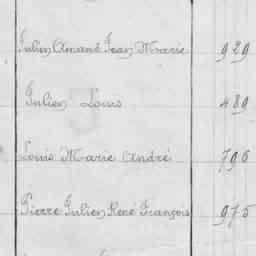 Julien Amand Jean Marie 929
Julien Louis 489
Louis Marie André 796
Pierre Julien René François 975